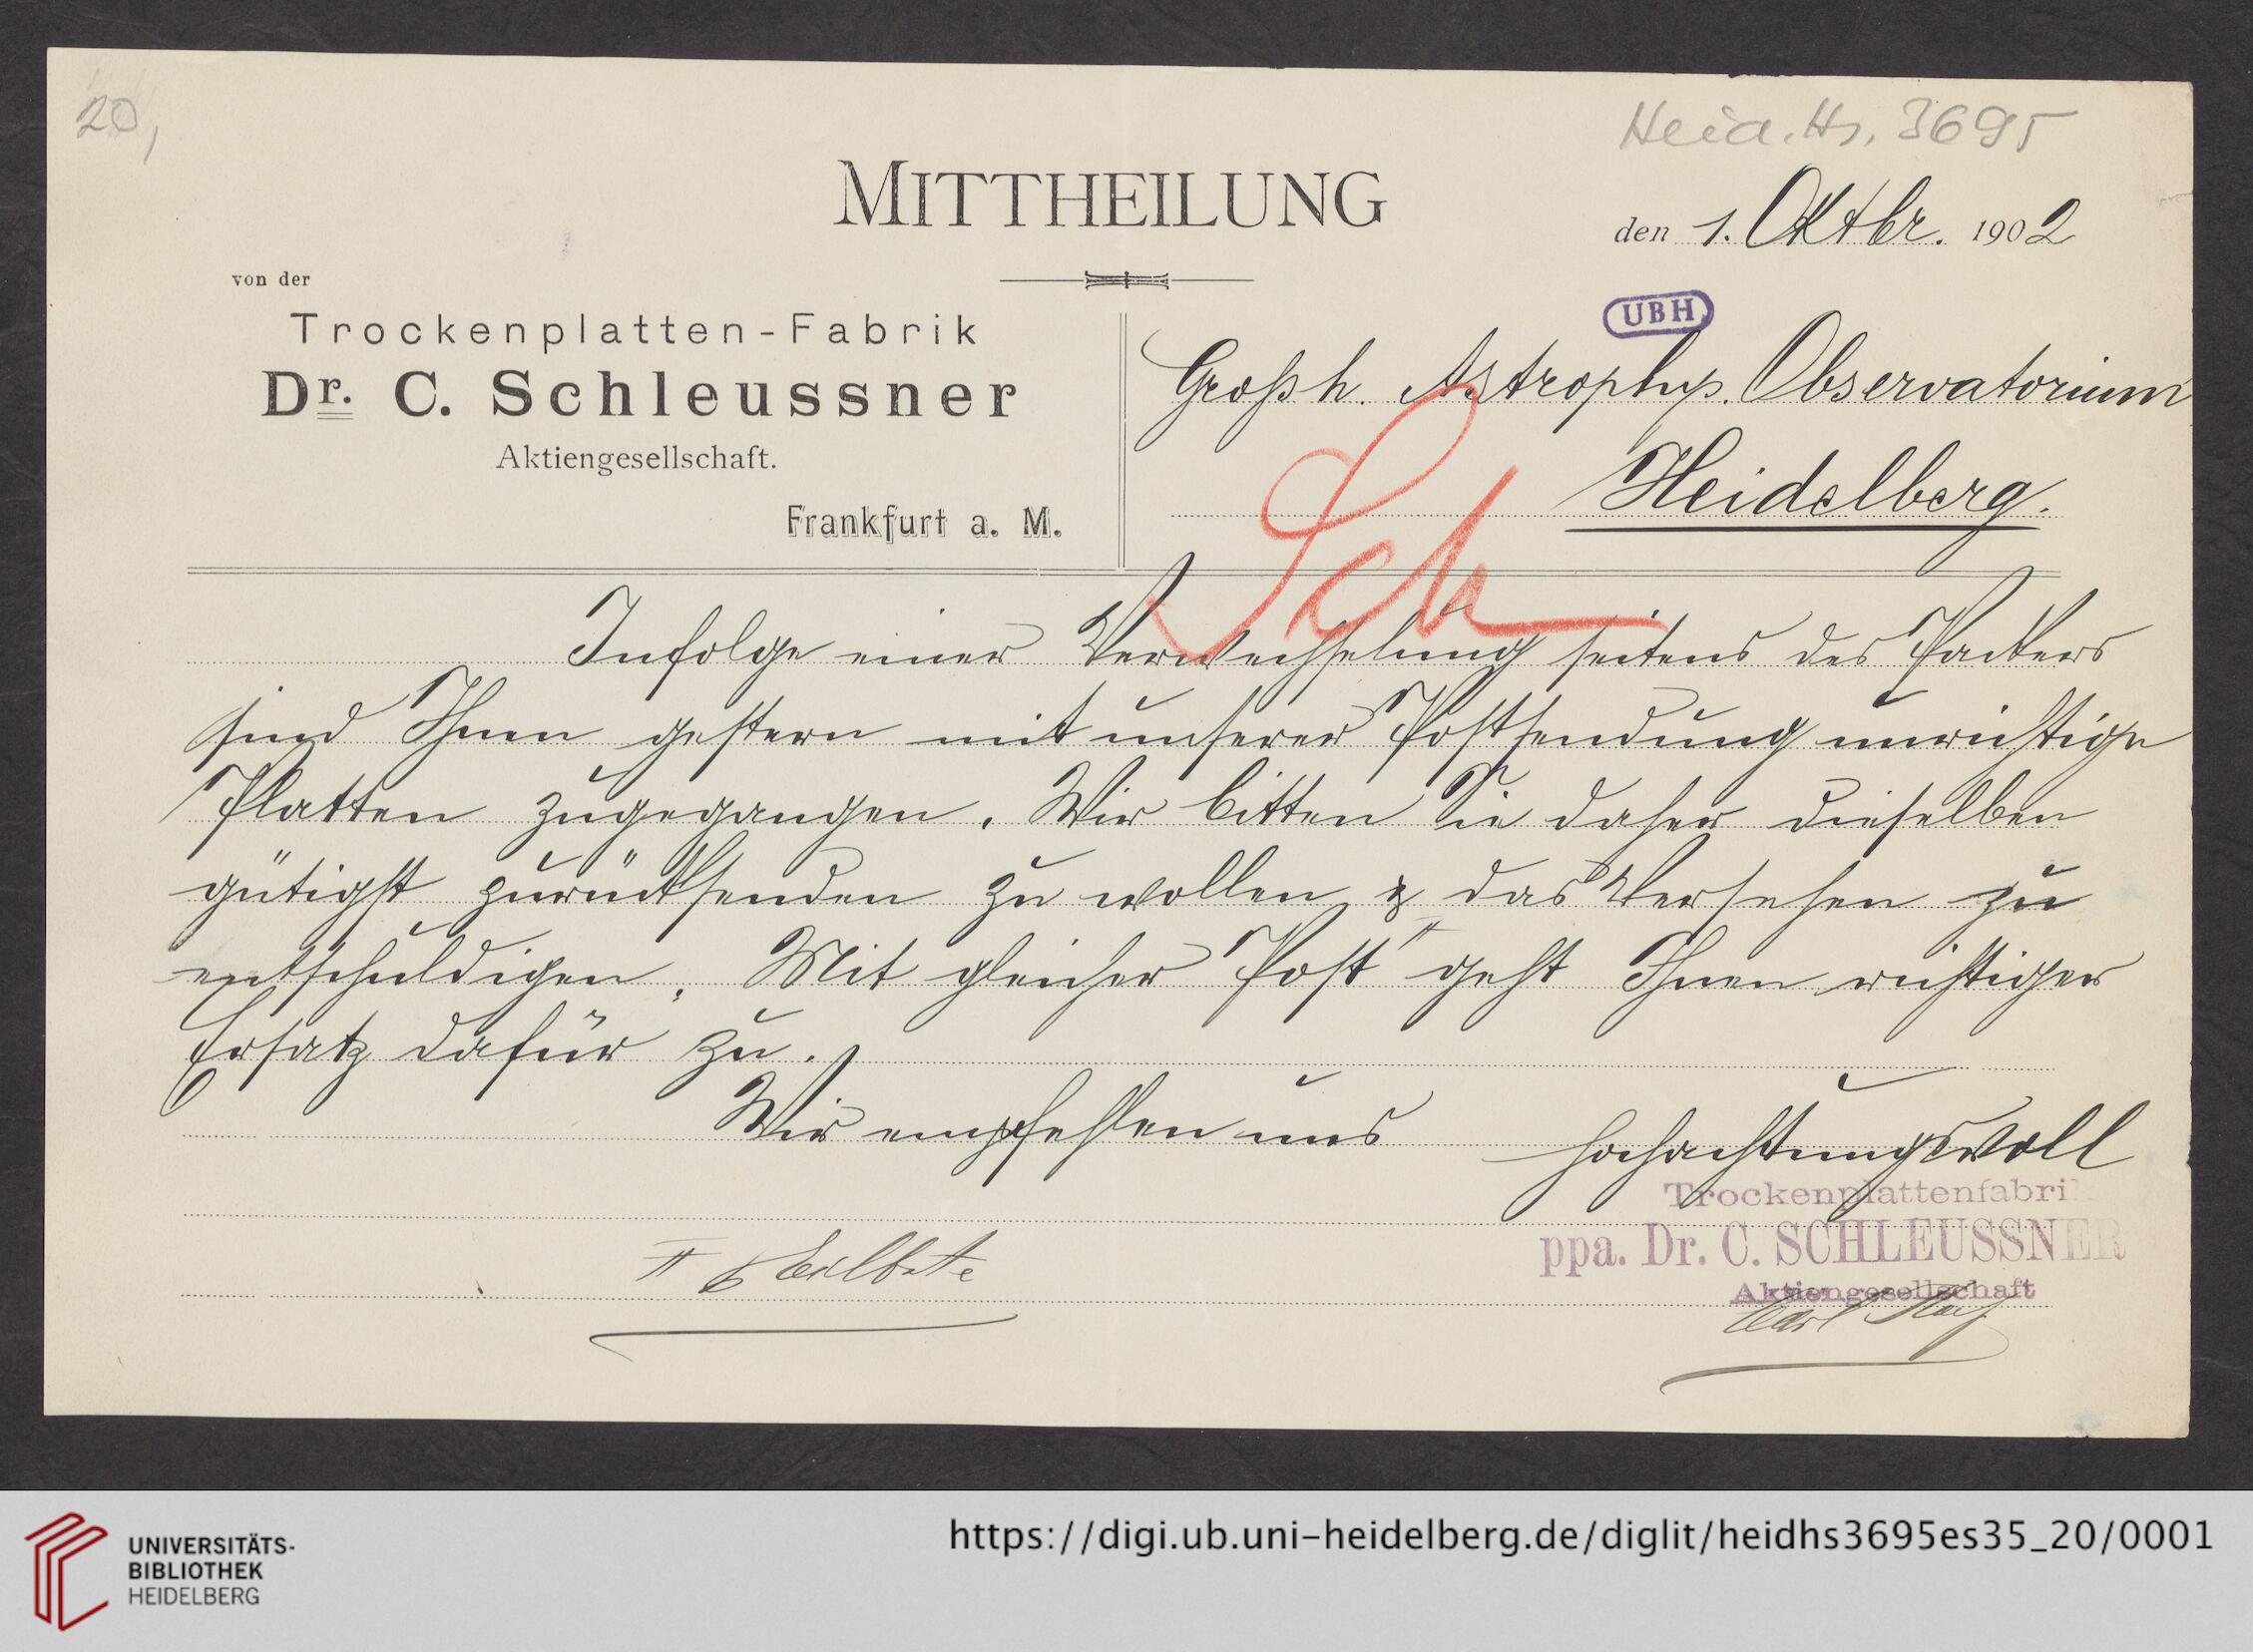 20,
Heid. Hs. 3695
MITTHEILUNG
den 1. Oktbr. 1902
von der
Trockenplatten-Fabrik
Dr. C. Schleussner
Aktiengesellschaft.
Frankfurt a. M.
UBH
Großh. Astrophys. Observatorium
Heidelberg.
Sch
Infolge einer Verwechselung seitens des Packers
sind Ihnen gestern mit unserer Postsendung unrichtige
Platten zugegangen. Wir bitten Sie daher dieselben
gütigst zurücksenden zu wollen & das Versehen zu
entschuldigen. Mit gleicher Post geht Ihnen richtiger
Ersatz dafür zu.
Wir empfehlen uns
Hochachtungsvoll
Trockenplattenfabrik
ppa. Dr. C. SCHLEUSSNER
Aktiengesellschaft
Carl
UNIVERSITÄTS-
BIBLIOTHEK
HEIDELBERG
https://digi.ub.uni-heidelberg.de/diglit/heidhs3695es35_20/0001